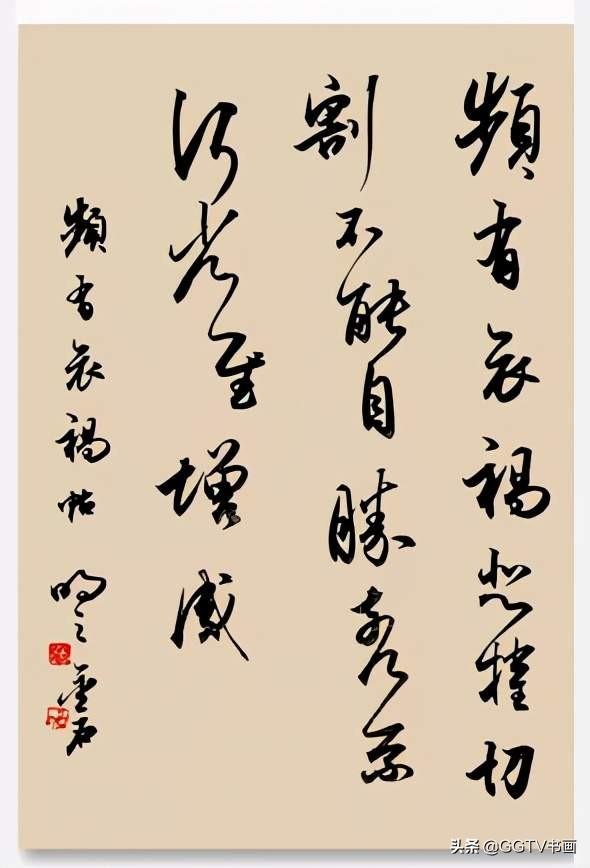 頻有哀禍悲摧切
割不能自勝奈何奈
何省慰增感
頻有哀禍帖
头条 @GGTV书画